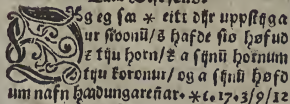 Og eg sa * eitt dyr uppstijga
ur siönū/ z hafde sio høfud
z tiju horn/ z a sijnū hornum
tiju koronur/ og a sijnū høfd
um nafn hædungareñar. * c.17.3/9/12